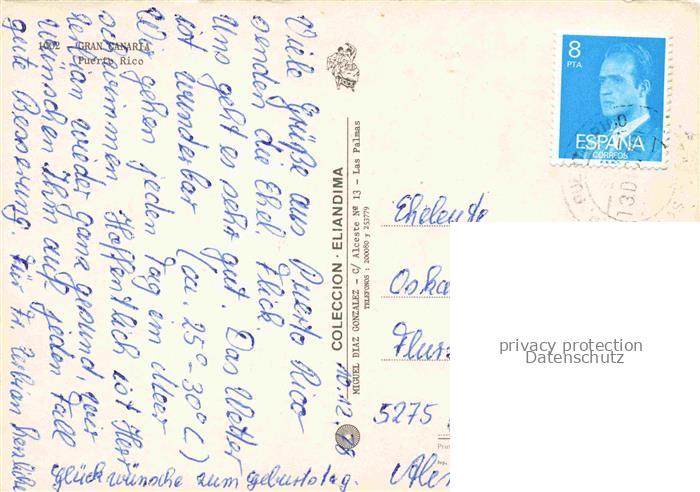 1002 GRAN CANARIA
Puerto Rico
Viele Grüße aus Puerto Rico
senden die Ehel. Flick.
Uns geht es sehr gut. Das Wetter
ist wunderbar (ca. 25°-30°C)
Wir gehen jeden Tag im Meer
schwimmen. Hoffentlich ist Herr
wieder ganz gesund, wir
wünschen Ihm auf jeden Fall
gute Besserung. Für Fr.
glückwünsche zum Geburtstag.
10.12.78
COLECCION · ELIANDIMA
MIGUEL DIAZ GONZALEZ - C/ Alceste Nº 13 - Las Palmas
TELEFONOS: 200080 y 253779
8
PTA
ESPAÑA
CORREOS
Eheleute
Oska
Fluss
5275
privacy protection
Datenschutz